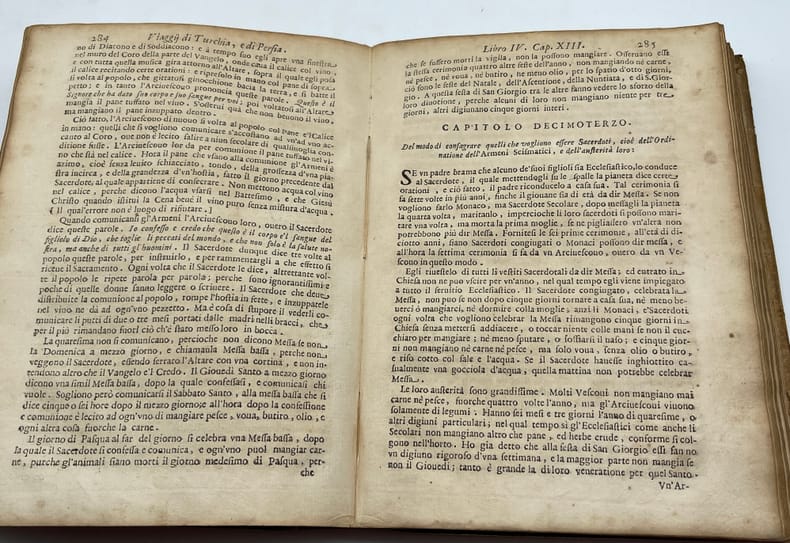 284 Viaggij di Turchia, e di Persia.
no di Diacono e di Soddiacono: e à tempo suo egli apre vna finestra
nel muro del Coro della parte del Vangelo, onde caua il calice col vino,
e con tutta quella musica gira attorno all'Altare, sopra il quale egli posa
il calice recitando certe orationi: e ripreso in mano col pane di sopra
si volta al popolo, che gittatosi ginocchione bacia la terra, e si batte il
petto: e in tanto l'Arciuescouo pronuncia queste parole. Questo è il
Signore che ha dato suo corpo e suo sangue per voi; poi voltatosi all'Altare
mangia il pane tuffato nel vino. S'osserui quà che non beuono il vino,
ma mangiano il pane inzuppato dentro.
Ciò fatto, l'Arciuescouo di nuouo si volta al popolo col pane e'l Calice
in mano: quelli che si vogliono comunicare s'accostano ad vn'ad vno ac-
canto al Coro, oue non è lecito salire à niun secolare di qualsiuoglia con-
ditione fusse. L'Arciuescouo lor dà per comunione il pane tuffato nel vi-
no che stà nel calice. Hora il pane che vsano alla comunione gl'Armeni è
azimo, cioè senza leuito schiacciato, tondo, della grossezza d'vna pia-
stra incirca, e della grandezza d'vn'hostia, fatto il giorno precedente dal
Sacerdote, al quale apparisione di consecrare. Non mettono acqua col vino
nel calice, perche dicono l'acqua vsarsi nel Battesimo, e che Giesù
Christo quando istituì la Cena beuè il vino puro senza mistura d'acqua.
( Il qual'errore non è luogo di rifiutare. )
Quando comunicansi gl'Armeni l'Arciuescouo loro, ouero il Sacerdote
dice queste parole. Io confesso e credo che questo è il corpo e'l sangue del
figliolo di Dio, che toglie li peccati del mondo, e che non solo è la salute no-
stra, ma anche di tutti gl'huomini. Il Sacerdote dunque dice tre volte al
popolo queste parole, per instruirlo, e per rammentargli à che effetto si
riceue il Sacramento. Ogni volta che il Sacerdote le dice, altrettante vol-
te il popolo le ripete parola per parola: perche sono ignorantissimi e
poche di quelle donne sanno leggere o scriuere. Il Sacerdote che deue
distribuire la comunione al popolo, rompe l'hostia in fette, e inzuppatele
nel vino ne dà ad ogn'vno pezzetto. Mà è cosa di stupore il vederli co-
municare li putti di due ò tre mesi portati dalle madri nelli bracci, che
per il più rimandano fuori ciò ch'è stato messo loro in bocca.
La quaresima non si comunicano, perciòche non dicono Messa se non
la Domenica a mezzo giorno, e chiamanla Messa bassa, perche non
veggono il Sacerdote, essendo serrato l'Altare con vna cortina, e non in-
tendono altro che il Vangelo e'l Credo. Il Giouedì Santo a mezzo giorno
dicono vna simil Messa bassa, dopo la quale confessasi, e comunicasi chi
vuole. Sogliono però comunicarsi il Sabbato Santo, alla messa bassa che si
dice cinque o sei hore dopo il mezzo giorno; e all'hora dopo la confessione
e comunione è lecito ad ogn'vno di mangiare pesce, voua, butiro, olio, e
ogni altra cosa fuorche la carne.
Il giorno di Pasqua al far del giorno si celebra vna Messa bassa, dopo
la quale il Sacerdote si confessa e comunica, e ogn'vno può mangiar car-
ne, purche gl'animali siano morti il giorno medesimo di Pasqua, per-
che
Libro IV. Cap. XIII. 285
che se fussero morti la vigilia, non la possono mangiare. Osseruano essi
la stessa cerimonia quattro altre feste dell'anno, non mangiando nè carne,
nè pesce, nè voua, nè butiro, nè meno olio, per lo spatio d'otto giorni,
ciò sono le feste del Natale, dell'Ascentione, della Nuntiata, e di S. Gior-
gio. A questa festa di San Giorgio tra le altre fanno vedere lo sforzo della
loro diuotione, perche alcuni di loro non mangiano niente per tre
giorni, altri digiunano cinque giorni interi.
CAPITOLO DECIMOTERZO.
Del modo di consagrare quelli che vogliono essere Sacerdoti, cioè dell'Ordi-
natione dell'Armeni Scismatici, e dell'austerità loro:
SE vn padre brama che alcuno de'suoi figlioli sia Ecclesiastico, lo conduce
al Sacerdote, il quale mettendogli su le spalle la pianeta dice certe
orationi, e ciò fatto, il padre riconducelo à casa sua. Tal cerimonia si
fa sette volte in più anni, finche il giouane sia di età da dir Messa. Se non
vogliono farlo Monaco, ma Sacerdote Secolare, dopo messagli la pianeta
la quarta volta, maritanlo, impercioche li loro sacerdoti si possono mari-
tare vna volta, ma morta la prima moglie, se ne pigliauero vn'altra non
potrebbono più dir Messa. Fornitesi le sei prime cerimonie, all'età di di-
ciotto anni, siano Sacerdoti congiugati o Monaci possono dir messa, e
all'hora la settima cerimonia si fa da vn Arciuescouo, ouero da vn Ve-
scouo in questo modo.
Egli riuestelo di tutti li vestiti Sacerdotali da dir Messa, ed entrato in
Chiesa non ne può vscire per vn'anno, nel qual tempo egli viene impiegato
a tutto il seruitio Ecclesiastico. Il Sacerdote congiugato, celebrata la
Messa, non può se non dopo cinque giorni tornare a casa sua, nè meno be-
uerci ò mangiarci, nè dormire colla moglie; anzi li Monaci, e'Sacerdoti
ogni volta che vogliono celebrar la Messa rimangono cinque giorni in
Chiesa senza mettersi addiacere, o toccar niente colle mani se non il cuc-
chiaro per mangiare; nè meno sputare, o soffiarsi il naso; e cinque gior-
ni non mangiano nè carne nè pesce, ma solo voua, senza olio o butiro
e riso cotto col sale e l'acqua. Se il Sacerdote hauesse inghiottito ca-
sualmente vna gocciola d'acqua, quella mattina non potrebbe celebrar
Messa.
Le loro austerità sono grandissime. Molti Vescoui non mangiano mai
carne nè pesce, fuorche quattro volte l'anno, ma gl'Arciuescoui viuono
solamente di legumi. Hanno sei mesi e tre giorni l'anno di quaresime, o
altri digiuni particulari; nel qual tempo sì gl'Ecclesiastici come anche li
Secolari non mangiano altro che pane, ed herbe crude, conforme si col-
gono nell'horto. Ho gia detto che alla festa di San Giorgio essi fanno
vn digiuno rigoroso d'vna settimana, e la maggior parte non mangia se
non il Giouedì; tanto è grande la di loro veneratione per quel Santo.
Vn'Ar-